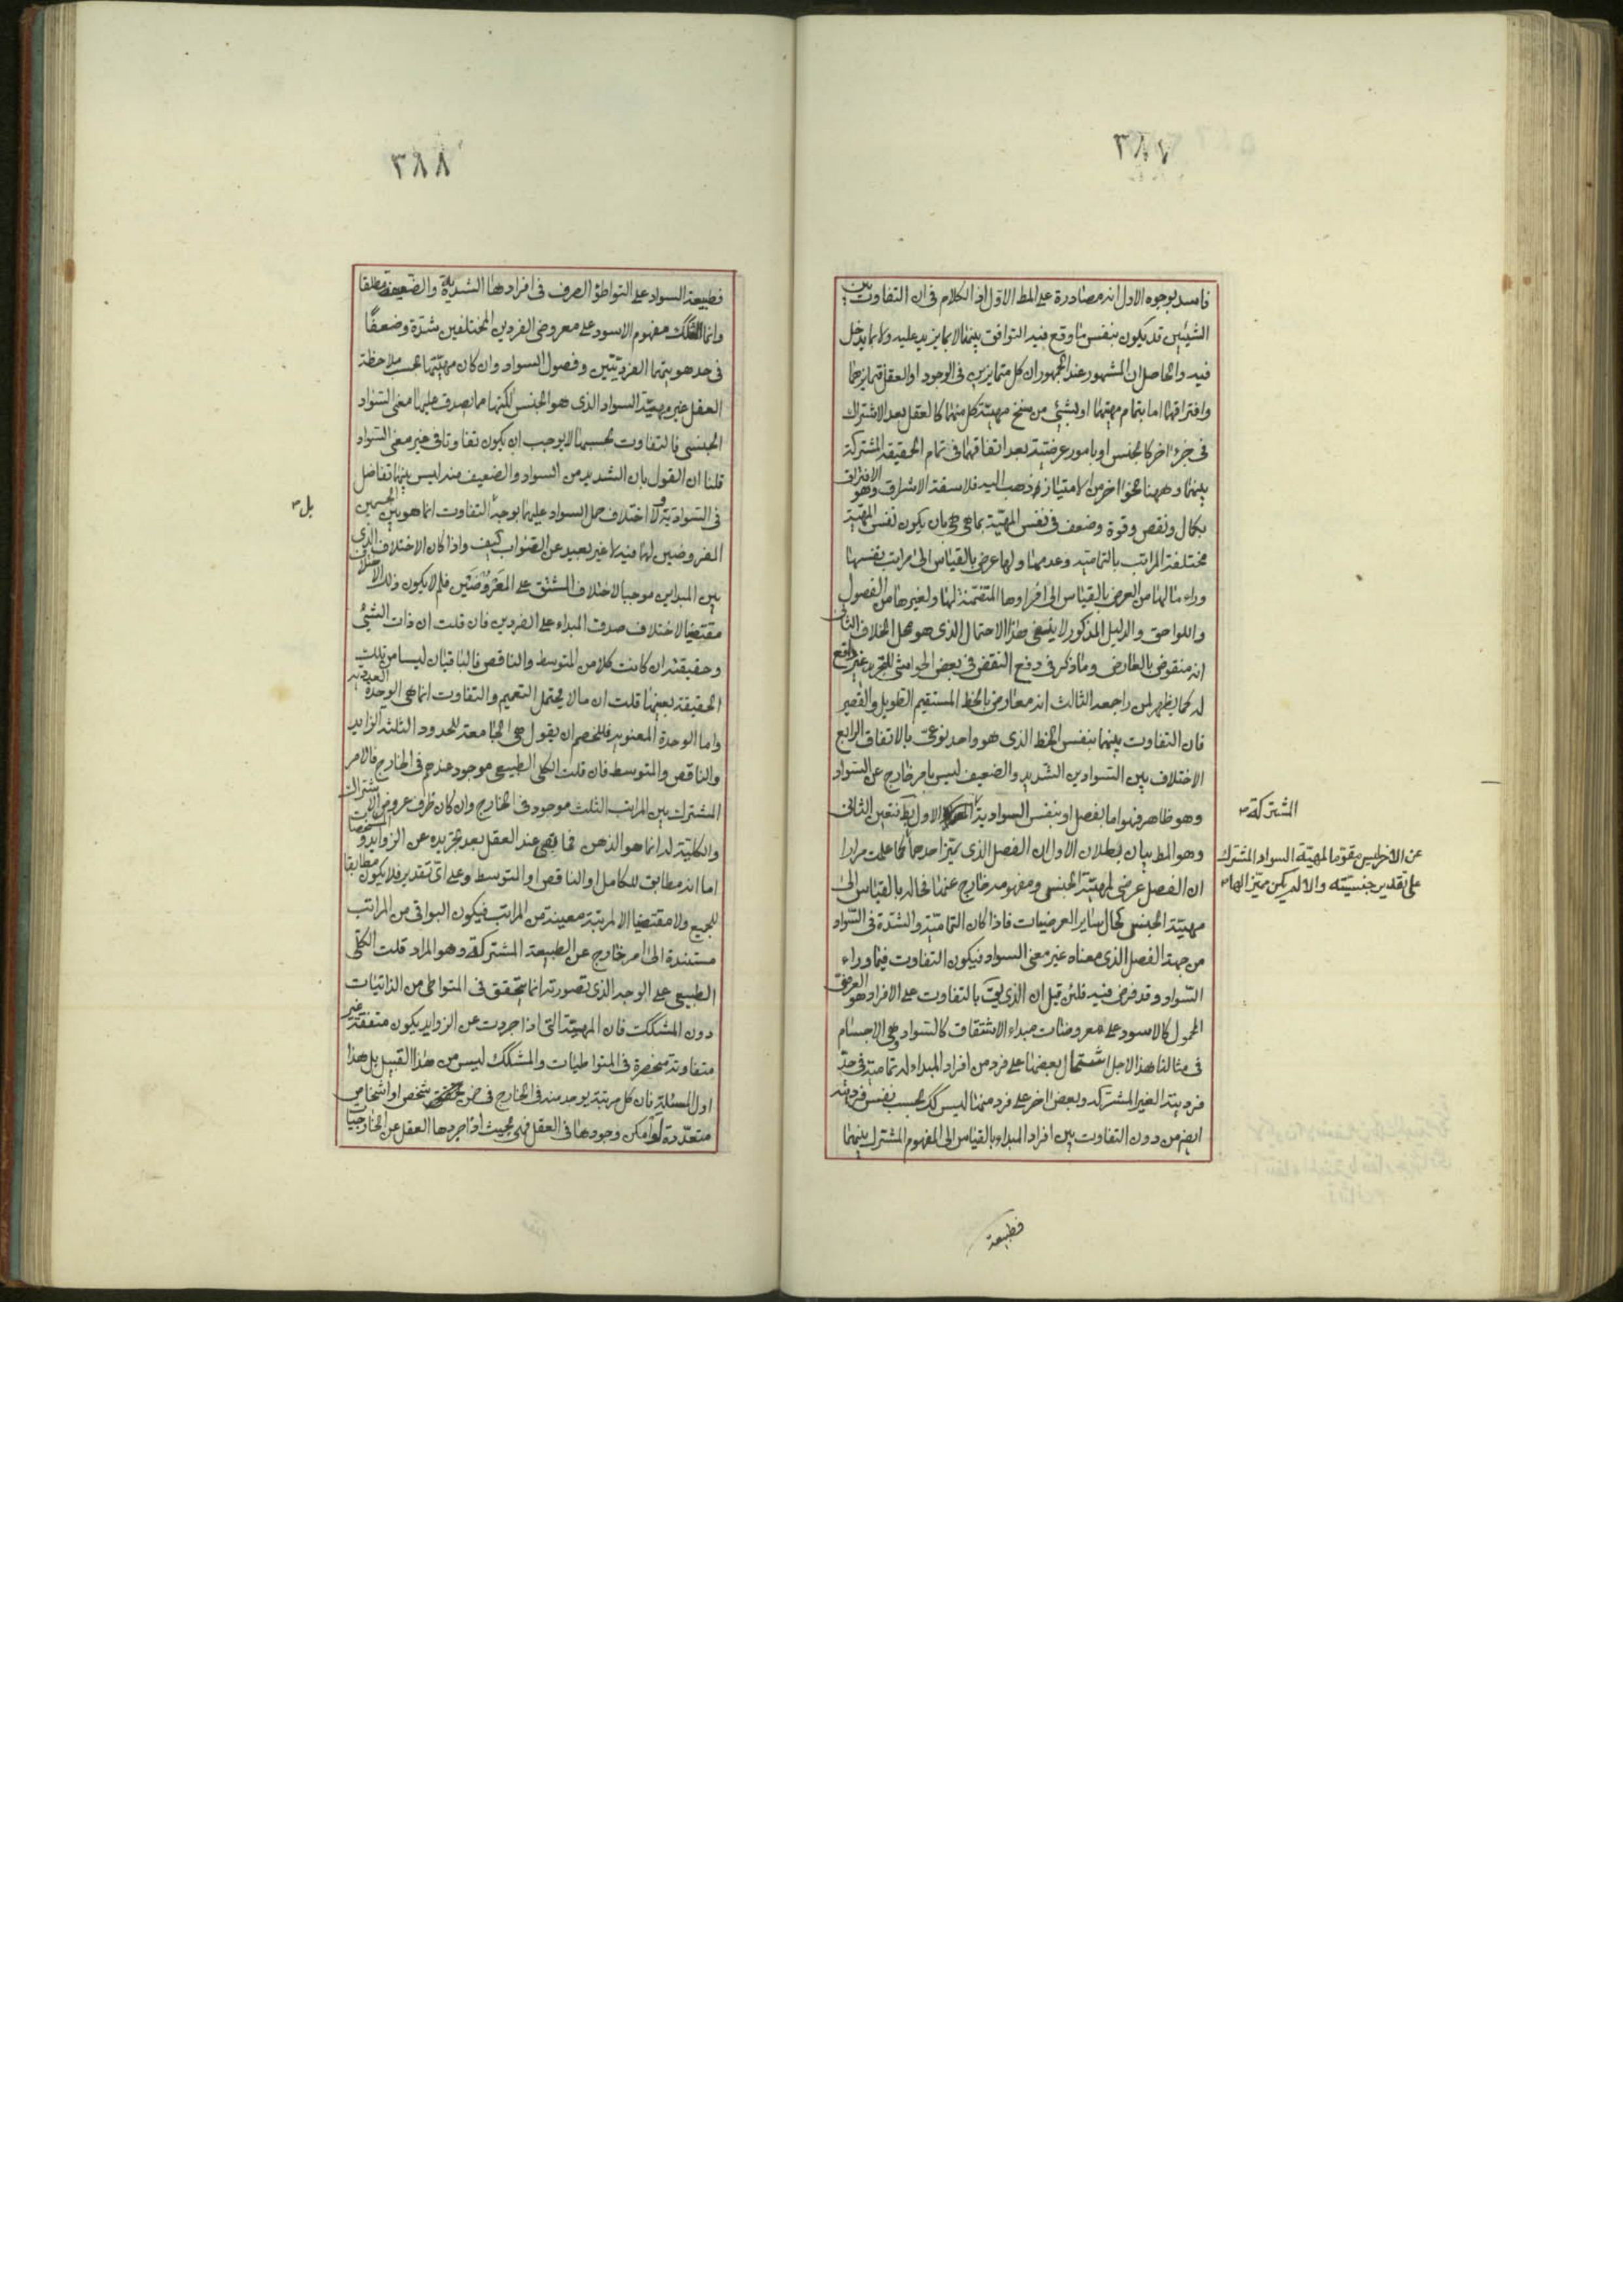 ٣٨٧
فاسد بوجوه الاول انه مصادرة على المط الاول اذ الكلام فى ان التفاوت بين
الشيئين قد يكون بنفس ما وقع فيه التوافق بينهما لا بما يزيد عليه ولا بما يدخل
فيه والحاصل ان المشهور عند الجمهور ان كل متمايزين فى الوجود او العقل فتمايزهما
وافتراقهما اما بتمام مهيتهما او بشئ من سنخ مهية كل منهما كالفصل بعد الاشتراك
فى جزء اخر كالجنس او بامور عرضية بعد اتفاقهما فى تمام الحقيقة المشتركة
بينهما وههنا نحو اخر من الامتياز ذهب اليه فلاسفة الاشراق وهو الافتراق
بكمال ونقص وقوة وضعف فى نفس المهية بما هى هى بان يكون نفس المهية
مختلفة المراتب بالتمامية وعدمها ولها عرض بالقياس الى مراتب نفسها
وراء ما لها من العرض بالقياس الى افرادها المتضمنة لها ولغيرها من الفصول
واللواحق والدليل المذكور لا ينفى هذا الاحتمال الذى هو محل الخلاف الثانى
انه منقوض بالعارض وما ذكر فى دفع النقض فى بعض الحواشى للتجريد غير دافع
له كما يظهر لمن راجعه الثالث انه معارض بالخط المستقيم الطويل والقصير
فان التفاوت بينهما بنفس الخط الذى هو واحد نوعى بالاتفاق الرابع
الاختلاف بين السوادين الشديد والضعيف ليس بامر خارج عن السواد
وهو ظاهر فهو اما بفصل او بنفس السوادية المشتركة الاول بط فتعين الثانى
وهو المط بيان بطلان الاول ان الفصل الذى يميز احدهما عن الاخر ليس مقوما لمهية السواد المشترك
على تقدير جنسيته والا لم يكن مميزا لها كما علمت مرارا
ان الفصل عرضى لمهية الجنس ومفهومه خارج عنها فحاله بالقياس الى
مهية الجنس كحال ساير العرضيات فاذا كان التمامية والشدة فى السواد
من جهة الفصل الذى معناه غير معنى السواد فيكون التفاوت فيما وراء
السواد وقد فرض فيه فلئن قيل ان الذى يق بالتفاوت على الافراد هو العرضى
المحمول كالاسود على معروضات مبداء الاشتقاق كالسواد وهى الاجسام
فى مثالنا هذا لاجل اشتمال بعضها على فرد من افراد المبداء له تمامية فى حد
فرديته الغير المشتركه وبعض اخر على فرد منها ليس كك بحسب نفس فرديته
ايضا من دون التفاوت بين افراد المبداء بالقياس الى المفهوم المشترك بينهما
فطبيعة
٣٨٨
فطبيعة السواد على التواطؤ الصرف فى افرادها الشديدة والضعيفة مطلقا
وانما المشكك مفهوم الاسود على معروضى الفردين المختلفين شدة وضعفًا
فى حد هويتهما الفرديتين وفصول السواد وان كان مهيتها بحسب ملاحظة
العقل غير مهية السواد الذى هو الجنس لكنها مما يصدق عليها معنى السواد
الجنسى فالتفاوت بحسبها لا يوجب ان يكون تفاوتا فى غير معنى السواد
قلنا ان القول بان الشديد من السواد والضعيف منه ليس بينهما تفاضل
فى السوادية ولا اختلاف حمل السواد عليهما يوجد بل التفاوت انما هو بين الجسمين
المعروضين لهما فيه لا غير بعيد عن الصواب كيف واذا كان الاختلاف الذى
بين المبداين موجبا لاختلاف المشتق على المعروضين فلم لا يكون ذلك الاختلاف
مقتضيا لاختلاف صدق المبداء على الفردين فان قلت ان ذات الشئ
وحقيقته ان كانت كلا من المتوسط والناقص فالباقيان ليسا من تلك
الحقيقة بعينها قلت ان ما لا يحتمل التعميم والتفاوت انما هى الوحدة العددية
واما الوحدة المعنوية فللخصم ان يقول هى الجامعة للحدود الثلثة الزايد
والناقص والمتوسط فان قلت الكلى الطبيعى موجود عندهم فى الخارج فالامر
المشترك بين المراتب الثلث موجود فى الخارج وان كان ظرف عروض الاشتراك
والكلية له انما هو الذهن فما بقى عند العقل بعد تجريده عن الزوايد والمشخصات
اما انه مطابق للكامل او الناقص او المتوسط وعلى اى تقدير فلا يكون مطابقا
للجميع ولا مقتضيا الا لمرتبة معينة من المراتب فيكون البواقى من المراتب
مستندة الى امر خارج عن الطبيعة المشتركة وهو المراد قلت الكلى
الطبيعى على الوجه الذى تصورته انما يتحقق فى المتواطى من الذاتيات
دون المشكك فان المهية التى اذا جردت عن الزوايد يكون متفقة غير
متفاوتة منحصرة فى المتواطيات والمشكك ليس من هذا القبيل بل هذا
اول المسئلة فان كل مرتبة يوجد منه فى الخارج فى ضمن شخص او اشخاص
متعددة لو امكن وجودها فى العقل فهى بحيث اذا جردها العقل عن الخارجيات